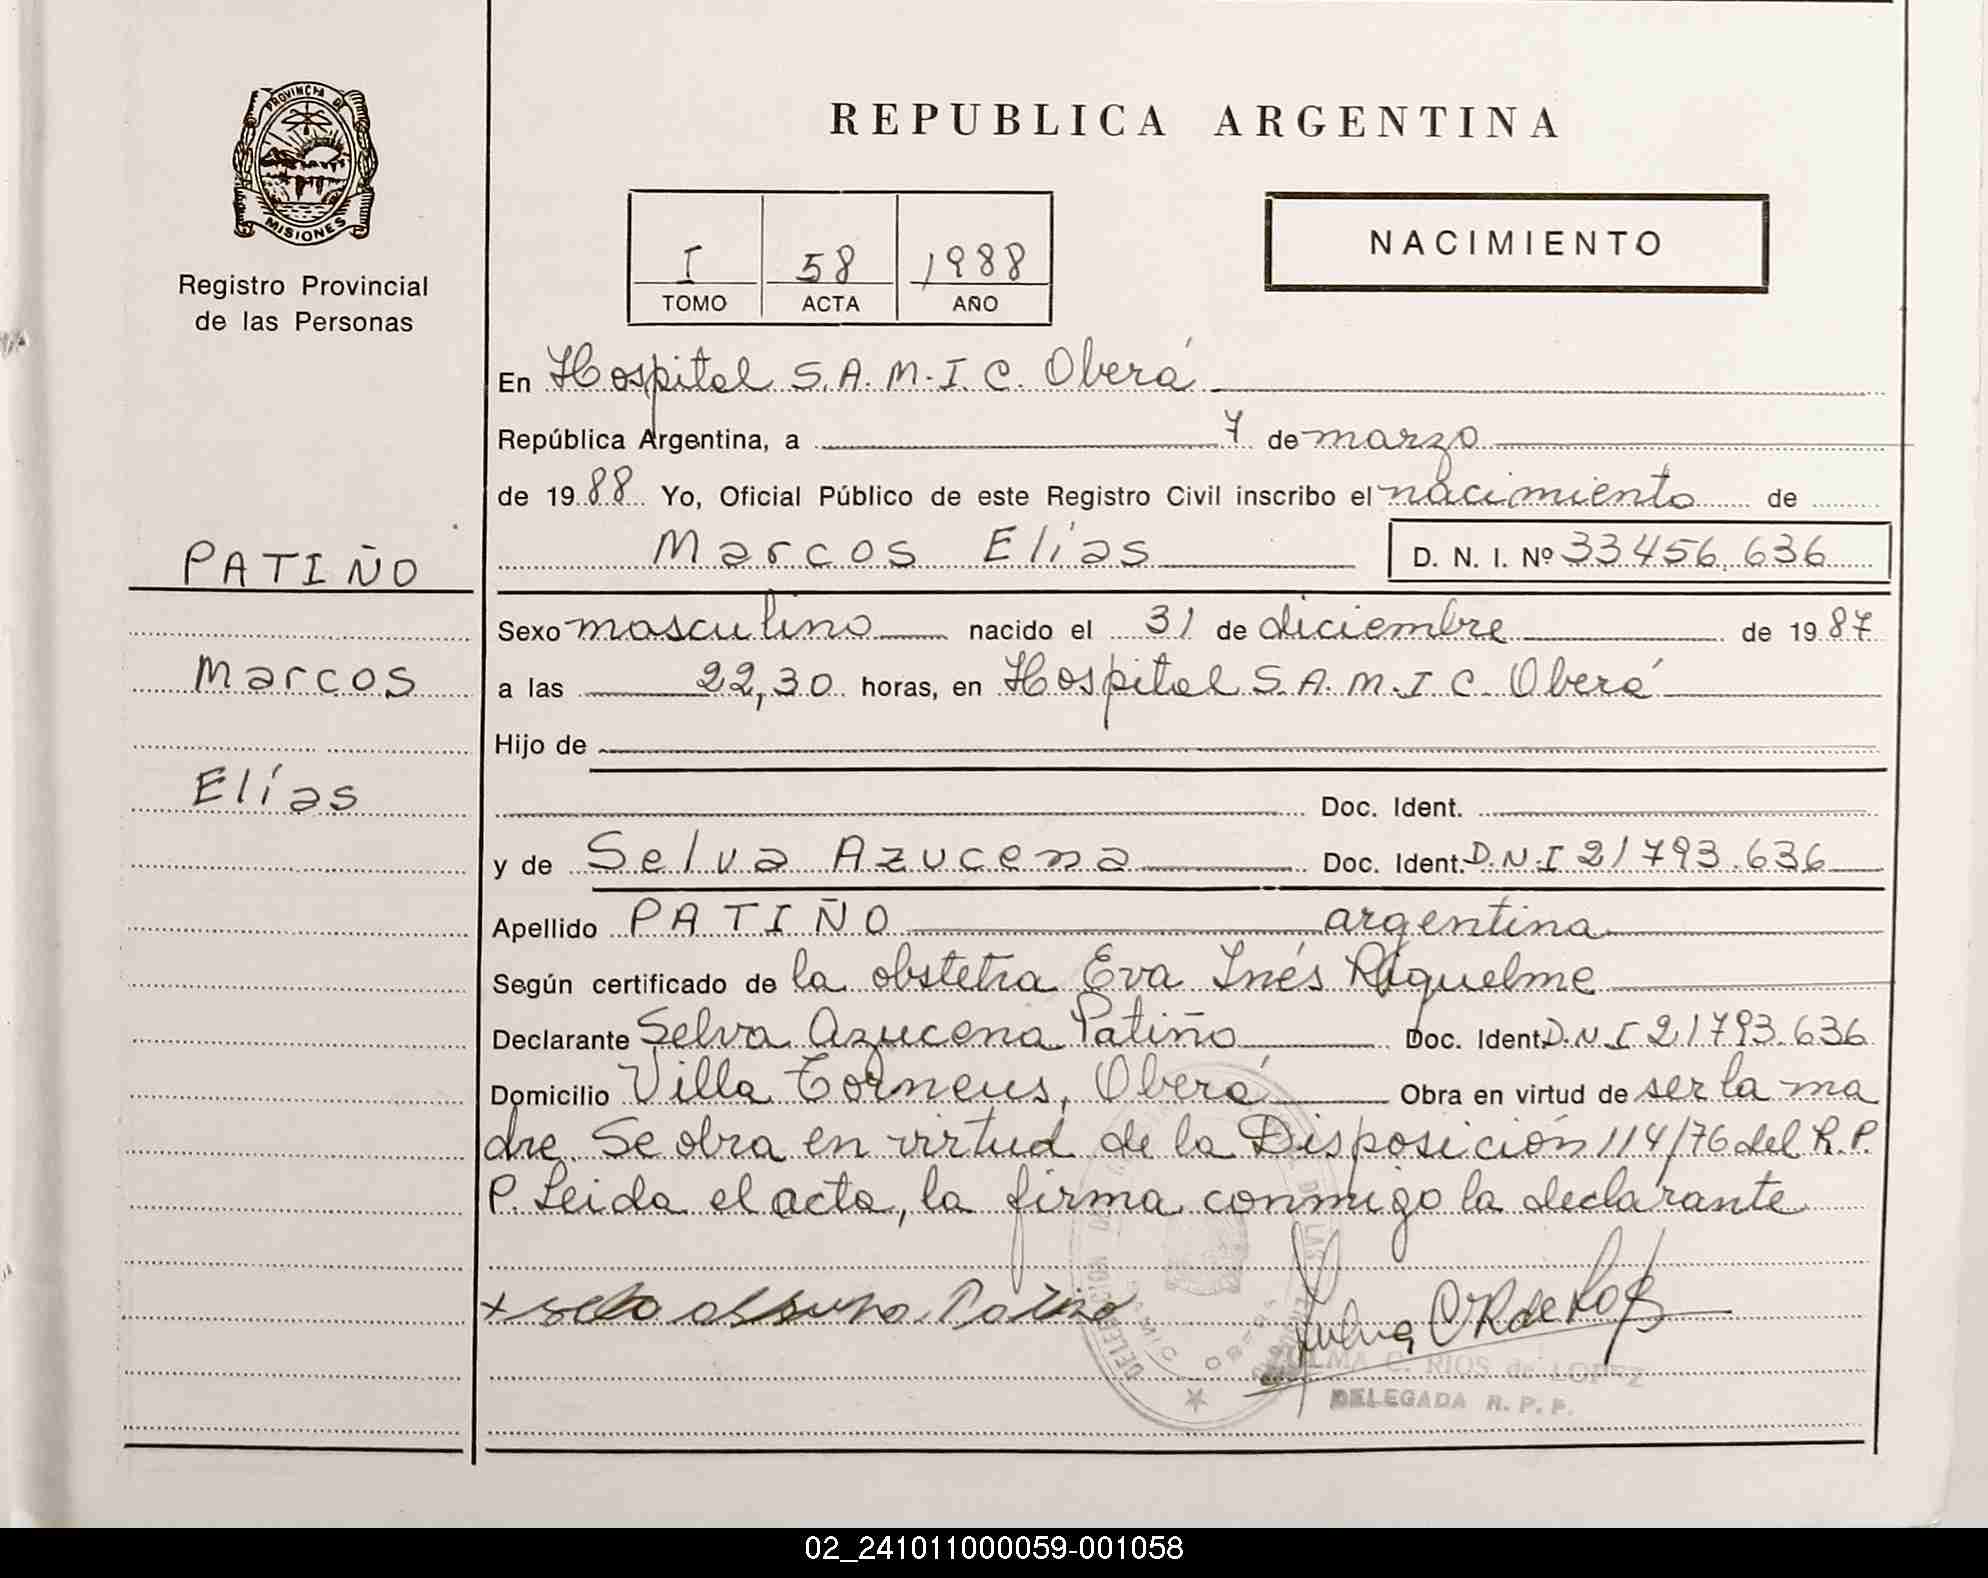 PROVINCIA DE
MISIONES
Registro Provincial
de las Personas
REPUBLICA ARGENTINA
I 58 1988
TOMO ACTA AÑO
NACIMIENTO
En Hospital S.A.M.I.C. Oberá
República Argentina, a 7 de marzo
de 1988 Yo, Oficial Público de este Registro Civil inscribo el nacimiento de
Marcos Elías D. N. I. Nº 33456.636
PATIÑO
Marcos
Elías
Sexo masculino nacido el 31 de diciembre de 1987
a las 22,30 horas, en Hospital S.A.M.I.C. Oberá
Hijo de
Doc. Ident.
y de Selva Azucena Doc. Ident. D.N.I 21793.636
Apellido PATIÑO argentina
Según certificado de la obstetra Eva Inés Riquelme
Declarante Selva Azucena Patiño Doc. Ident. D.N.I 21793.636
Domicilio Villa Torneus, Oberá Obra en virtud de ser la ma
dre. Se obra en virtud de la Disposición 114/76 del R.P.
P. Leida el acta, la firma conmigo la declarante
C. RIOS de LOPEZ
DELEGADA R. P. P.
02_241011000059-001058